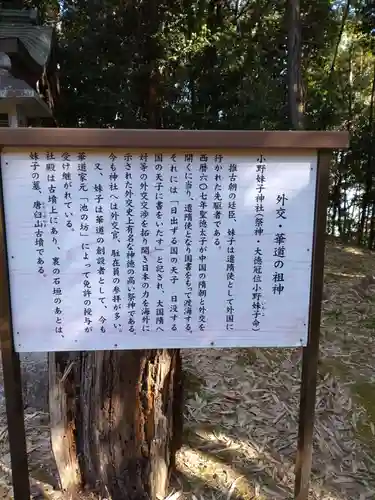 外交・華道の祖神
小野妹子神社(祭神・大徳冠位小野妹子命)
推古朝の廷臣、妹子は遣隋使として外国に
行かれた先駆者である。
西暦六〇七年聖徳太子が中国の隋朝と外交を
開くに当り、遣隋使となり国書をもって渡海する。
それには「日出ずる国の天子 日没する
国の天子に書をいたす」と記され、大国隋へ
対等の外交交渉を拓り開き日本の力を海外に
示された外交史上有名な神徳の高い祭神である。
今も神社へは外交官、駐在員の参拝が多い。
又、妹子は華道の創設者として、今も
華道家元「池の坊」によって免許の授与が
受け継がれている。
社殿は古墳上にあり、裏の石垣のあとは、
妹子の墓、唐臼山古墳である。